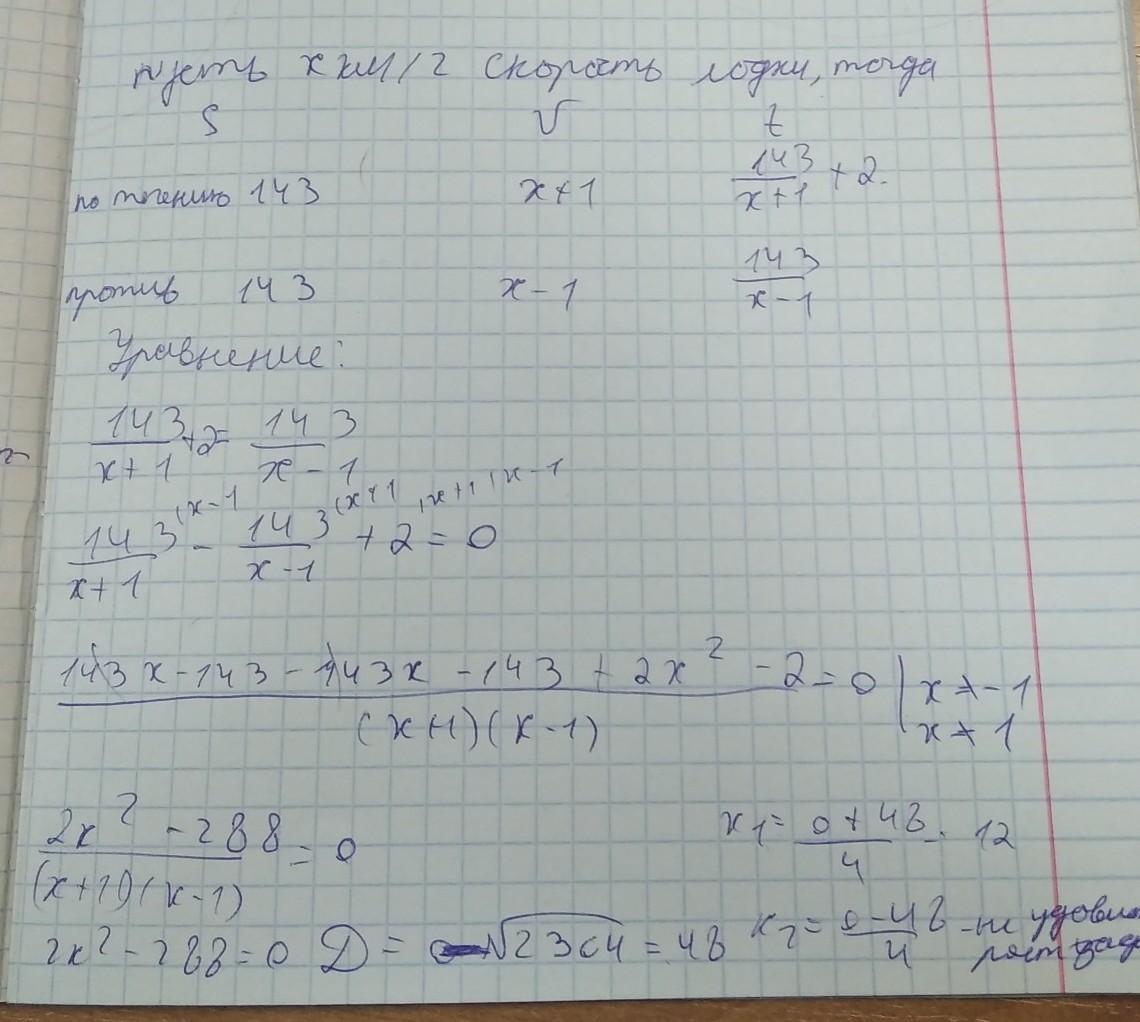 пусть x км/ч скорость лодки, тогда
S V t
по течению 143 x+1 143/(x+1) + 2.
против 143 x-1 143/(x-1)
Уравнение:
143/(x+1) +2= 143/(x-1)
143/(x+1) (x-1 - 143/(x-1) (x+1 + 2 (x+1 (x-1 = 0
(143x-143-143x-143+2x²-2)/((x+1)(x-1)) = 0 | x≠-1
x≠1
(2x²-288)/((x+1)(x-1)) = 0 x₁= (0+48)/4 = 12
2x²-288=0 Д = √2304 = 48 x₂= (0-48)/4 -не